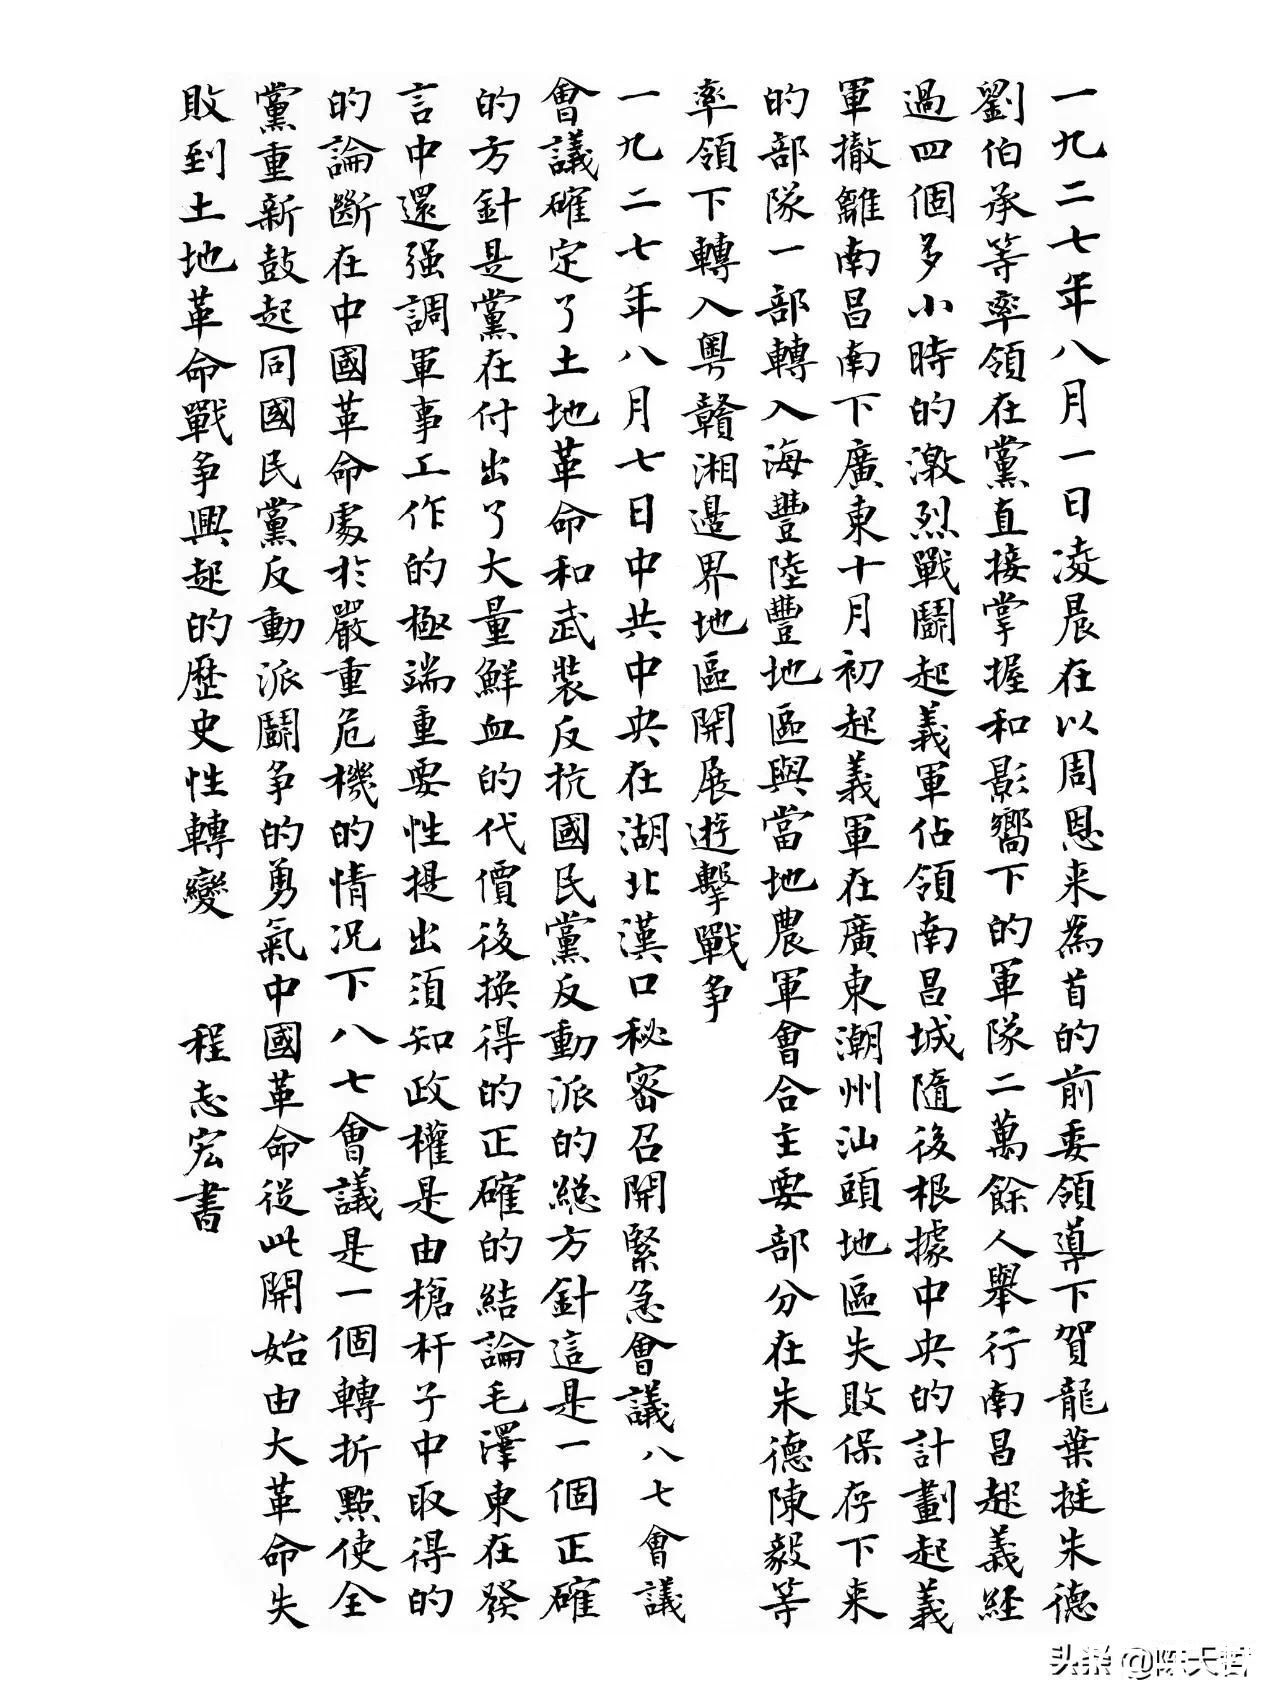 一九二七年八月一日凌晨在以周恩来為首的前委領導下賀龍葉挺朱德
劉伯承等率領在黨直接掌握和影響下的軍隊二萬餘人舉行南昌起義經
過四個多小時的激烈戰鬭起義軍佔領南昌城隨後根據中央的計劃起義
軍撤離南昌南下廣東十月初起義軍在廣東潮州汕頭地區失敗保存下来
的部隊一部轉入海豐陸豐地區與當地農軍會合主要部分在朱德陳毅等
率領下轉入粵贛湘邊界地區開展遊擊戰争
一九二七年八月七日中共中央在湖北漢口秘密召開緊急會議八七會議
會議確定了土地革命和武裝反抗國民黨反動派的總方針這是一個正確
的方針是黨在付出了大量鮮血的代價後換得的正確的結論毛澤東在發
言中還强調軍事工作的極端重要性提出須知政權是由槍杆子中取得的
的論斷在中國革命處於嚴重危機的情况下八七會議是一個轉折點使全
黨重新鼓起同國民黨反動派鬭争的勇氣中國革命從此開始由大革命失
敗到土地革命戰争興起的歷史性轉變 程志宏書
头条@陈天哲